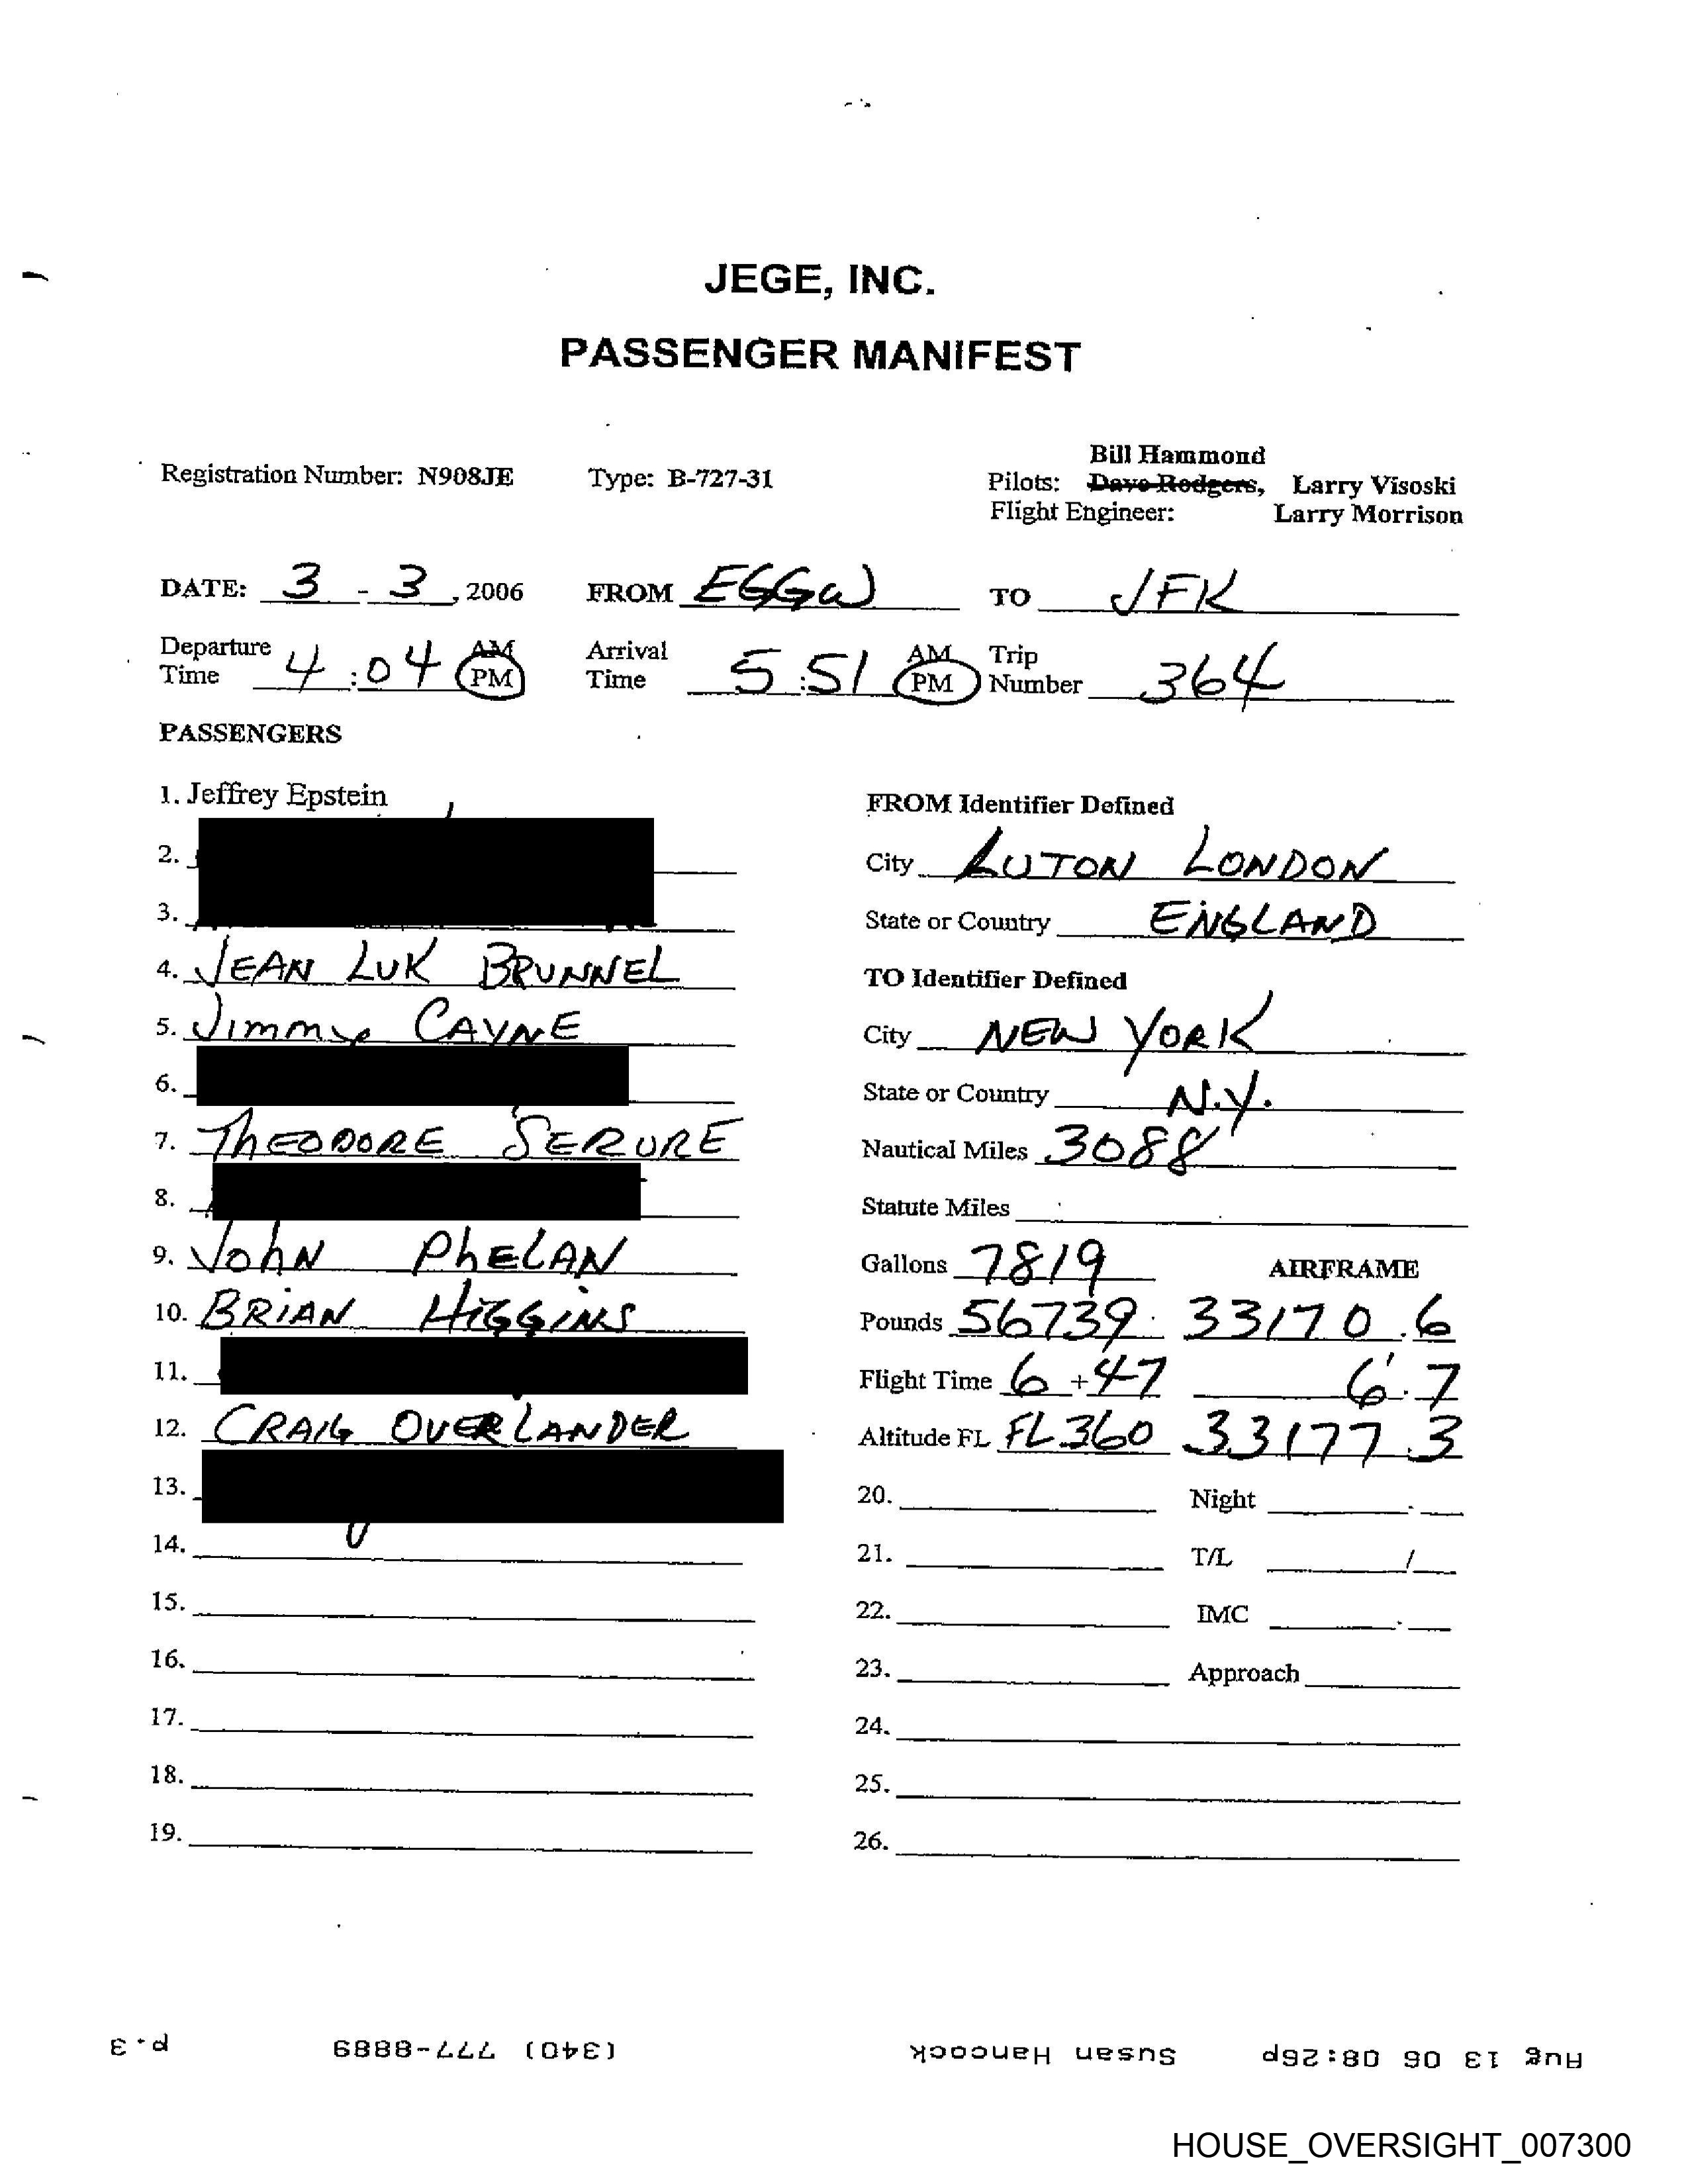 JEGE, INC.
PASSENGER MANIFEST
Bill Hammond
Registration Number: N908JE Type: B-727-31 Pilots: Dave Rodgers, Larry Visoski
Flight Engineer: Larry Morrison
DATE: 3 - 3, 2006 FROM EGGW TO JFK
Departure Time 4:04 AM PM Arrival Time 5:51 AM PM Trip Number 364
PASSENGERS
1. Jeffrey Epstein
2.
3.
4. JEAN LUK BRUNNEL
5. Jimmy CAYNE
6.
7. THEODORE SERURE
8.
9. JohN PhELAN
10. BRIAN HIGGINS
11.
12. CRAIG OVERLANDER
13.
14.
15.
16.
17.
18.
19.
FROM Identifier Defined
City LUTON LONDON
State or Country ENGLAND
TO Identifier Defined
City NEW YORK
State or Country N.Y.
Nautical Miles 3088
Statute Miles
Gallons 7819 AIRFRAME
Pounds 56739 33170.6
Flight Time 6+47 6.7
Altitude FL FL360 33177.3
20. Night
21. T/L /
22. IMC
23. Approach
24.
25.
26.
Aug 13 06 08:26p Susan Hancock (340) 777-8889 p.3
HOUSE_OVERSIGHT_007300